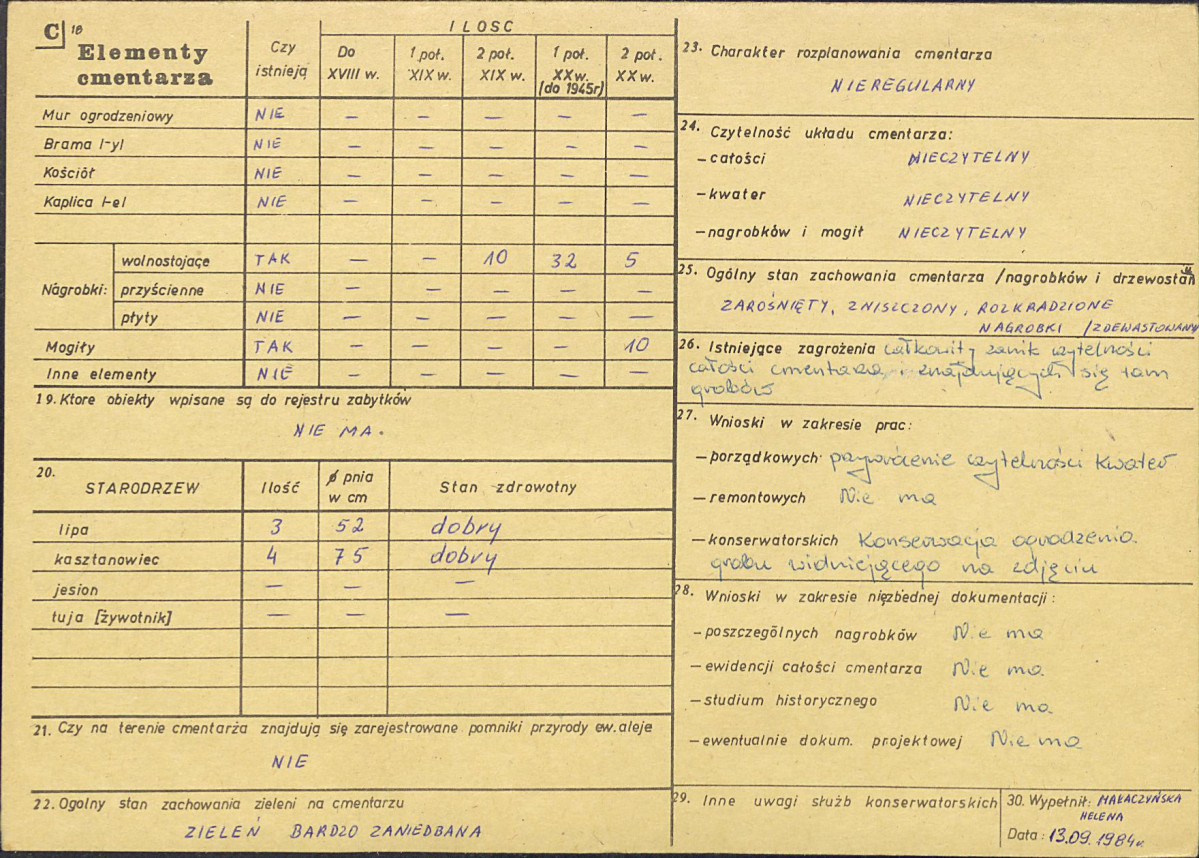 C 18
Elementy cmentarza
Czy istnieją
ILOSC
Do XVIII w.
1 poł. XIX w.
2 poł. XIX w.
1 poł. XX w. (do 1945r)
2 poł. XX w.
Mur ogrodzeniowy NIE — — — — —
Brama I-yl NIE — — — — —
Kościół NIE — — — — —
Kaplica I-el NIE — — — — —
Nagrobki: wolnostojące TAK — — 10 32 5
przyścienne NIE — — — — —
płyty NIE — — — — —
Mogiły TAK — — — — 10
Inne elementy NIE — — — — —
19. Ktore obiekty wpisane są do rejestru zabytków
NIE MA.
20. STARODRZEW Ilość ø pnia w cm Stan zdrowotny
lipa 3 52 dobry
kasztanowiec 4 75 dobry
jesion — — —
tuja [żywotnik] — — —
21. Czy na terenie cmentarza znajdują się zarejestrowane pomniki przyrody ew. aleje
NIE
22. Ogolny stan zachowania zieleni na cmentarzu
ZIELEŃ BARDZO ZANIEDBANA
23. Charakter rozplanowania cmentarza
NIEREGULARNY
24. Czytelność układu cmentarza:
– całości NIECZYTELNY
– kwater NIECZYTELNY
– nagrobków i mogił NIECZYTELNY
25. Ogólny stan zachowania cmentarza /nagrobków i drzewostanu
ZAROŚNIĘTY, ZNISZCZONY, ROZKRADZIONE
NAGROBKI /ZDEWASTOWANY
26. Istniejące zagrożenia całkowity zanik czytelności
całości cmentarza i znajdujących się tam
grobów
27. Wnioski w zakresie prac:
– porządkowych przywrócenie czytelności kwater
– remontowych Nie ma
– konserwatorskich Konserwacja ogrodzenia
grobu widniejącego na zdjęciu
28. Wnioski w zakresie niezbednej dokumentacji:
– poszczególnych nagrobków Nie ma
– ewidencji całości cmentarza Nie ma
– studium historycznego Nie ma
– ewentualnie dokum. projektowej Nie ma
29. Inne uwagi służb konserwatorskich
30. Wypełnił: MAKACZYŃSKA
HELENA
Data: 13.09.1984r.